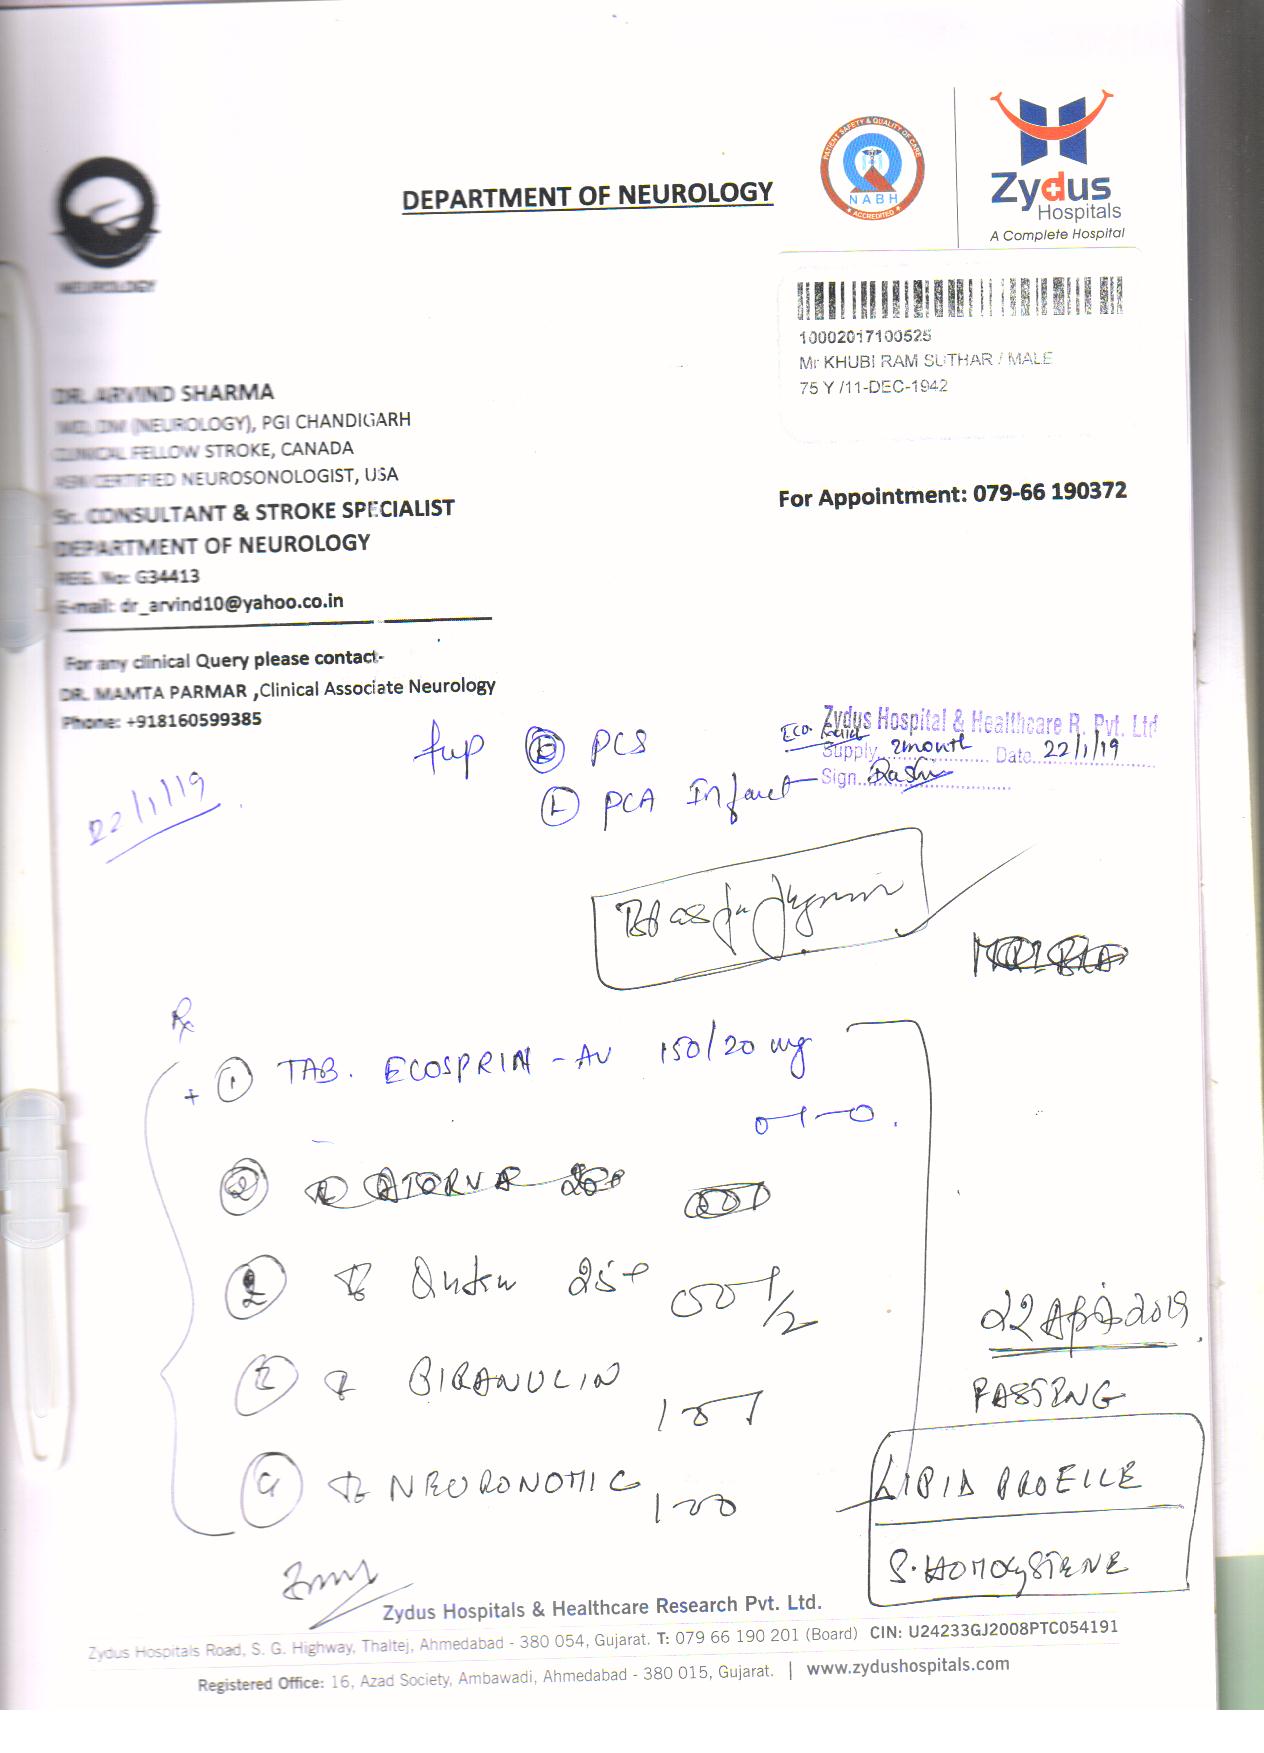 DEPARTMENT OF NEUROLOGY
PATIENT SAFETY & QUALITY OF CARE
NABH
ACCREDITED
Zydus
Hospitals
A Complete Hospital
NEUROLOGY
10002017100525
Mr KHUBI RAM SUTHAR / MALE
75 Y /11-DEC-1942
DR. ARVIND SHARMA
MD, DM (NEUROLOGY), PGI CHANDIGARH
CLINICAL FELLOW STROKE, CANADA
ASN CERTIFIED NEUROSONOLOGIST, USA
Sr. CONSULTANT & STROKE SPECIALIST
DEPARTMENT OF NEUROLOGY
REG. No: G34413
E-mail: dr_arvind10@yahoo.co.in
For Appointment: 079-66 190372
For any clinical Query please contact-
DR. MAMTA PARMAR ,Clinical Associate Neurology
Phone: +918160599385
Zydus Hospital & Healthcare R. Pvt. Ltd
Supply 2month Date 22/1/19
Sign
fup PCS
L PCA Infarct
22/1/19
Rx
+ 1 TAB. ECOSPRIN - AV 150/20 mg
0-1-0
2 25
BIRANULIN
4 NEURONOMIC
1-0-0
22 April 2019
FASTING
LIPID PROFILE
S. HOMOCYSTIENE
Zydus Hospitals & Healthcare Research Pvt. Ltd.
Zydus Hospitals Road, S. G. Highway, Thaltej, Ahmedabad - 380 054, Gujarat. T: 079 66 190 201 (Board) CIN: U24233GJ2008PTC054191
Registered Office: 16, Azad Society, Ambawadi, Ahmedabad - 380 015, Gujarat. | www.zydushospitals.com